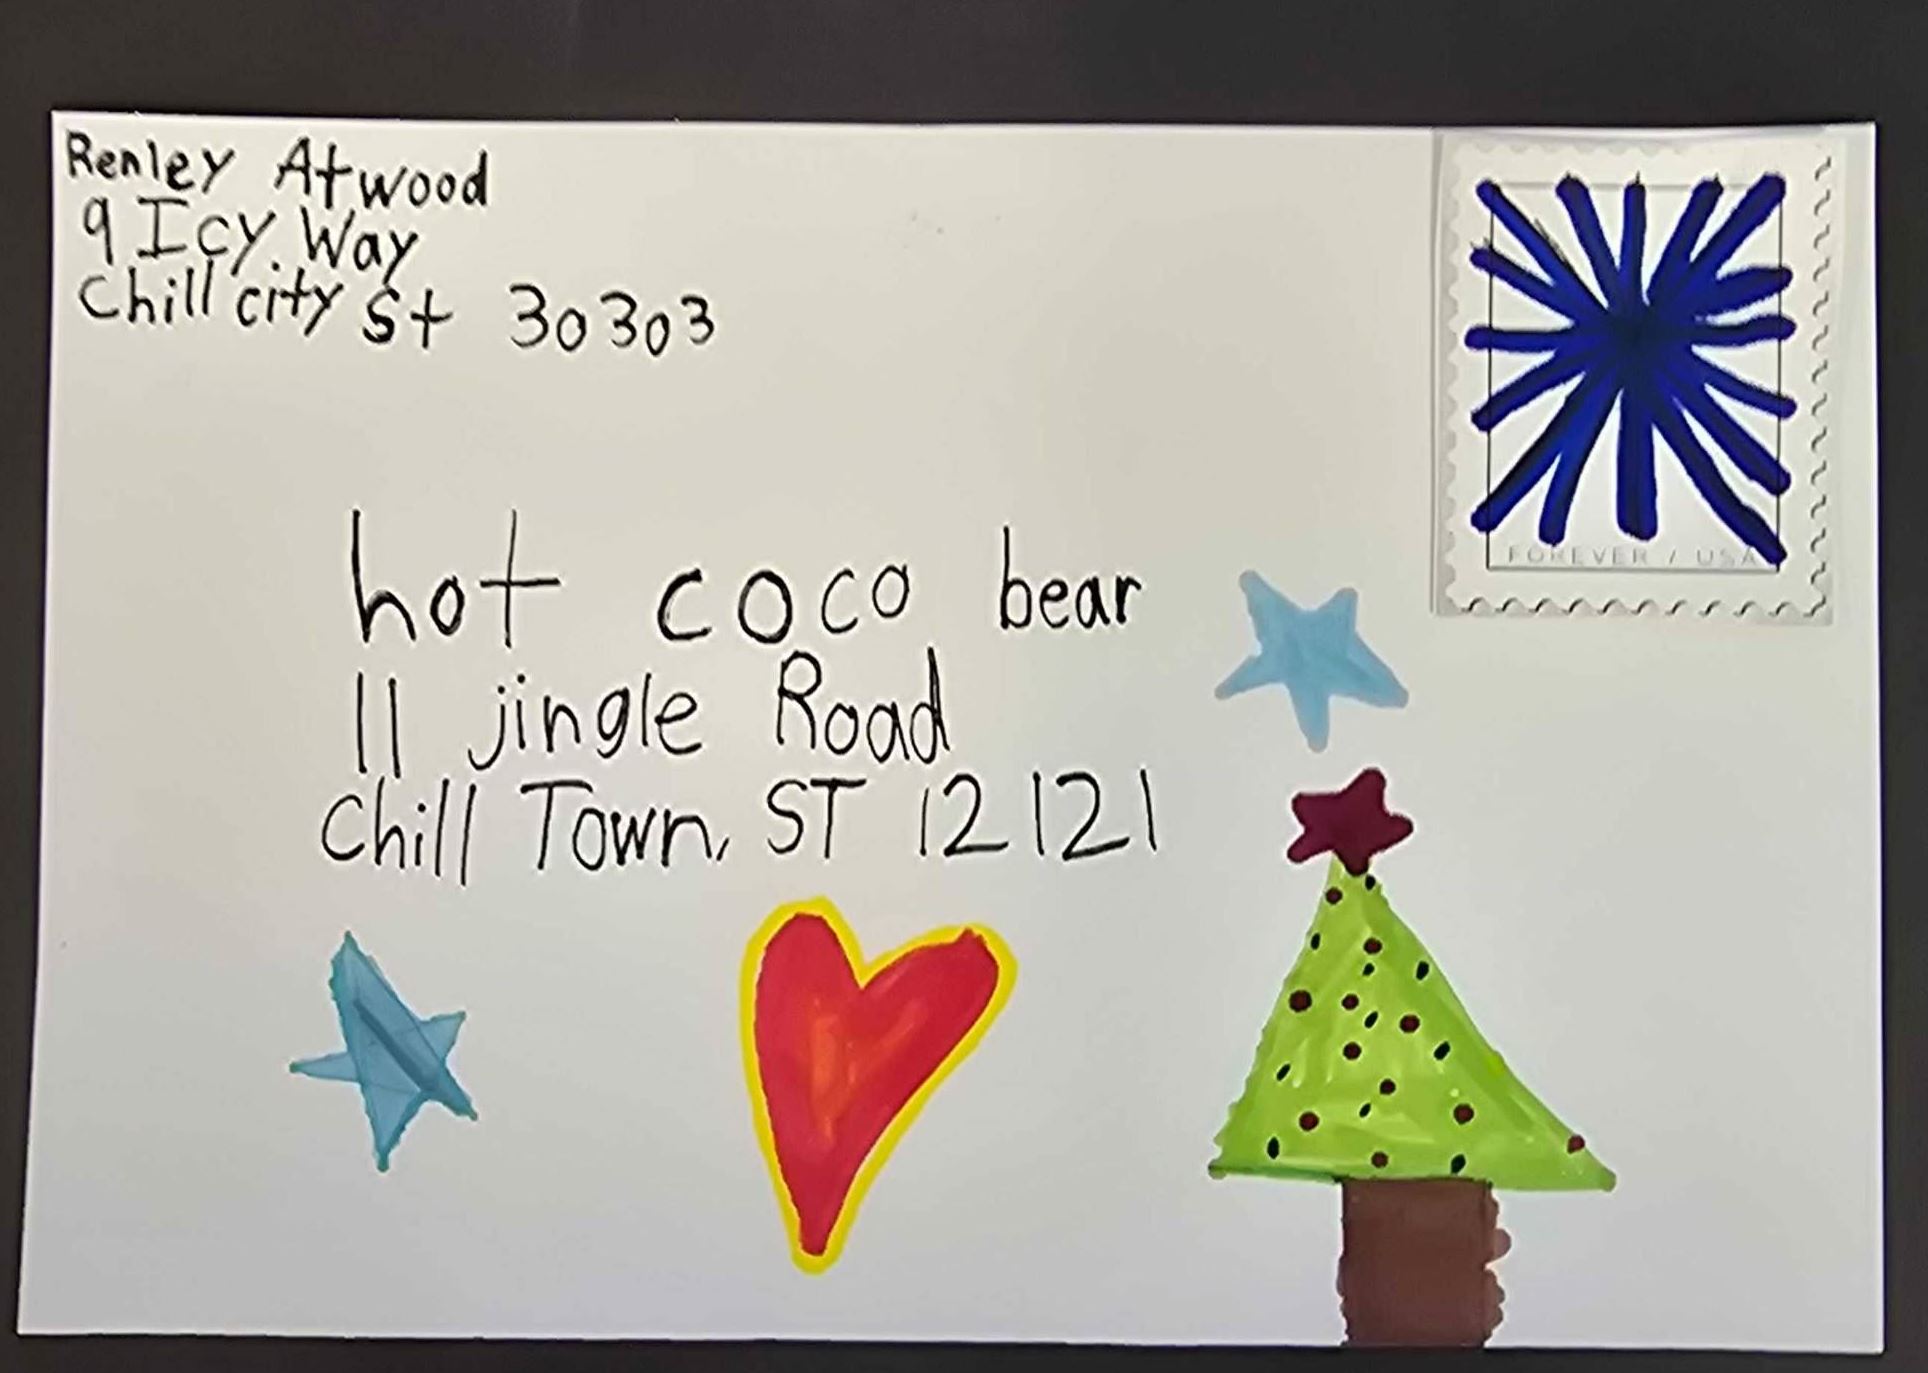 Renley Atwood
9 Icy Way
Chill city St 30303
FOREVER / USA
hot coco bear
11 jingle Road
Chill Town, ST 12121